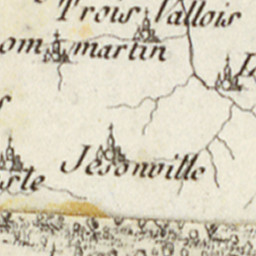 Trois Vallois
om martin
Jesonville
sle